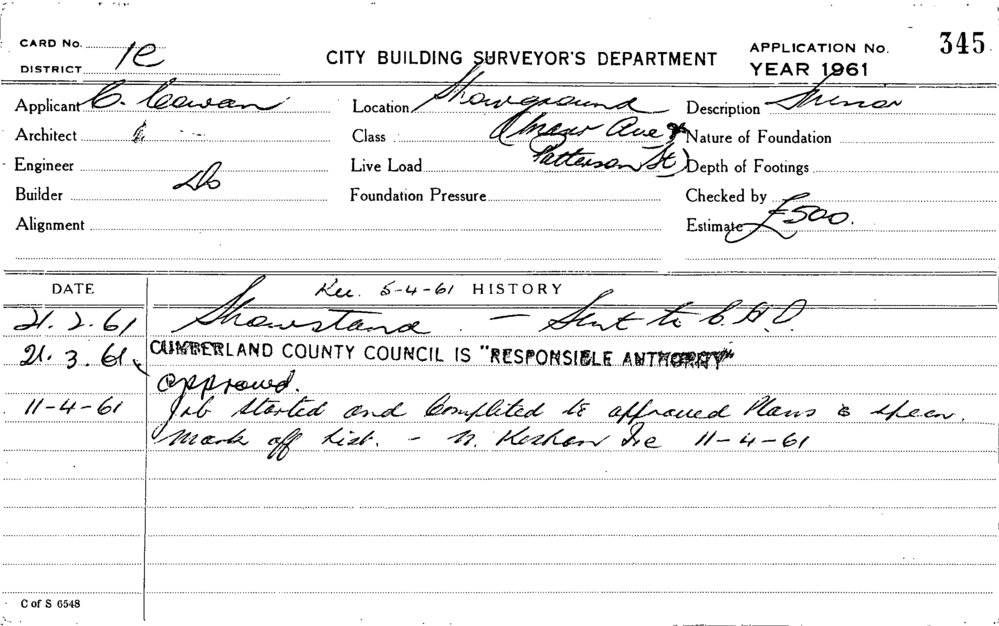 CARD No. 1E
DISTRICT
CITY BUILDING SURVEYOR'S DEPARTMENT
APPLICATION No. 345
YEAR 1961
Applicant C. Cowan
Location Showground
Description Minor
Architect
Class (Ave &
Nature of Foundation
Engineer
Live Load Patterson St)
Depth of Footings
Builder Do
Foundation Pressure
Checked by
Alignment
Estimate £500.
DATE
Rec. 5-4-61 HISTORY
21.2.61 Showstand - Sent to C.H.O.
21.3.61 CUMBERLAND COUNTY COUNCIL IS "RESPONSIBLE AUTHORITY"
approved.
11-4-61 Job started and completed to approved Plans & specn.
Mark off list. - 11-4-61
C of S 6548